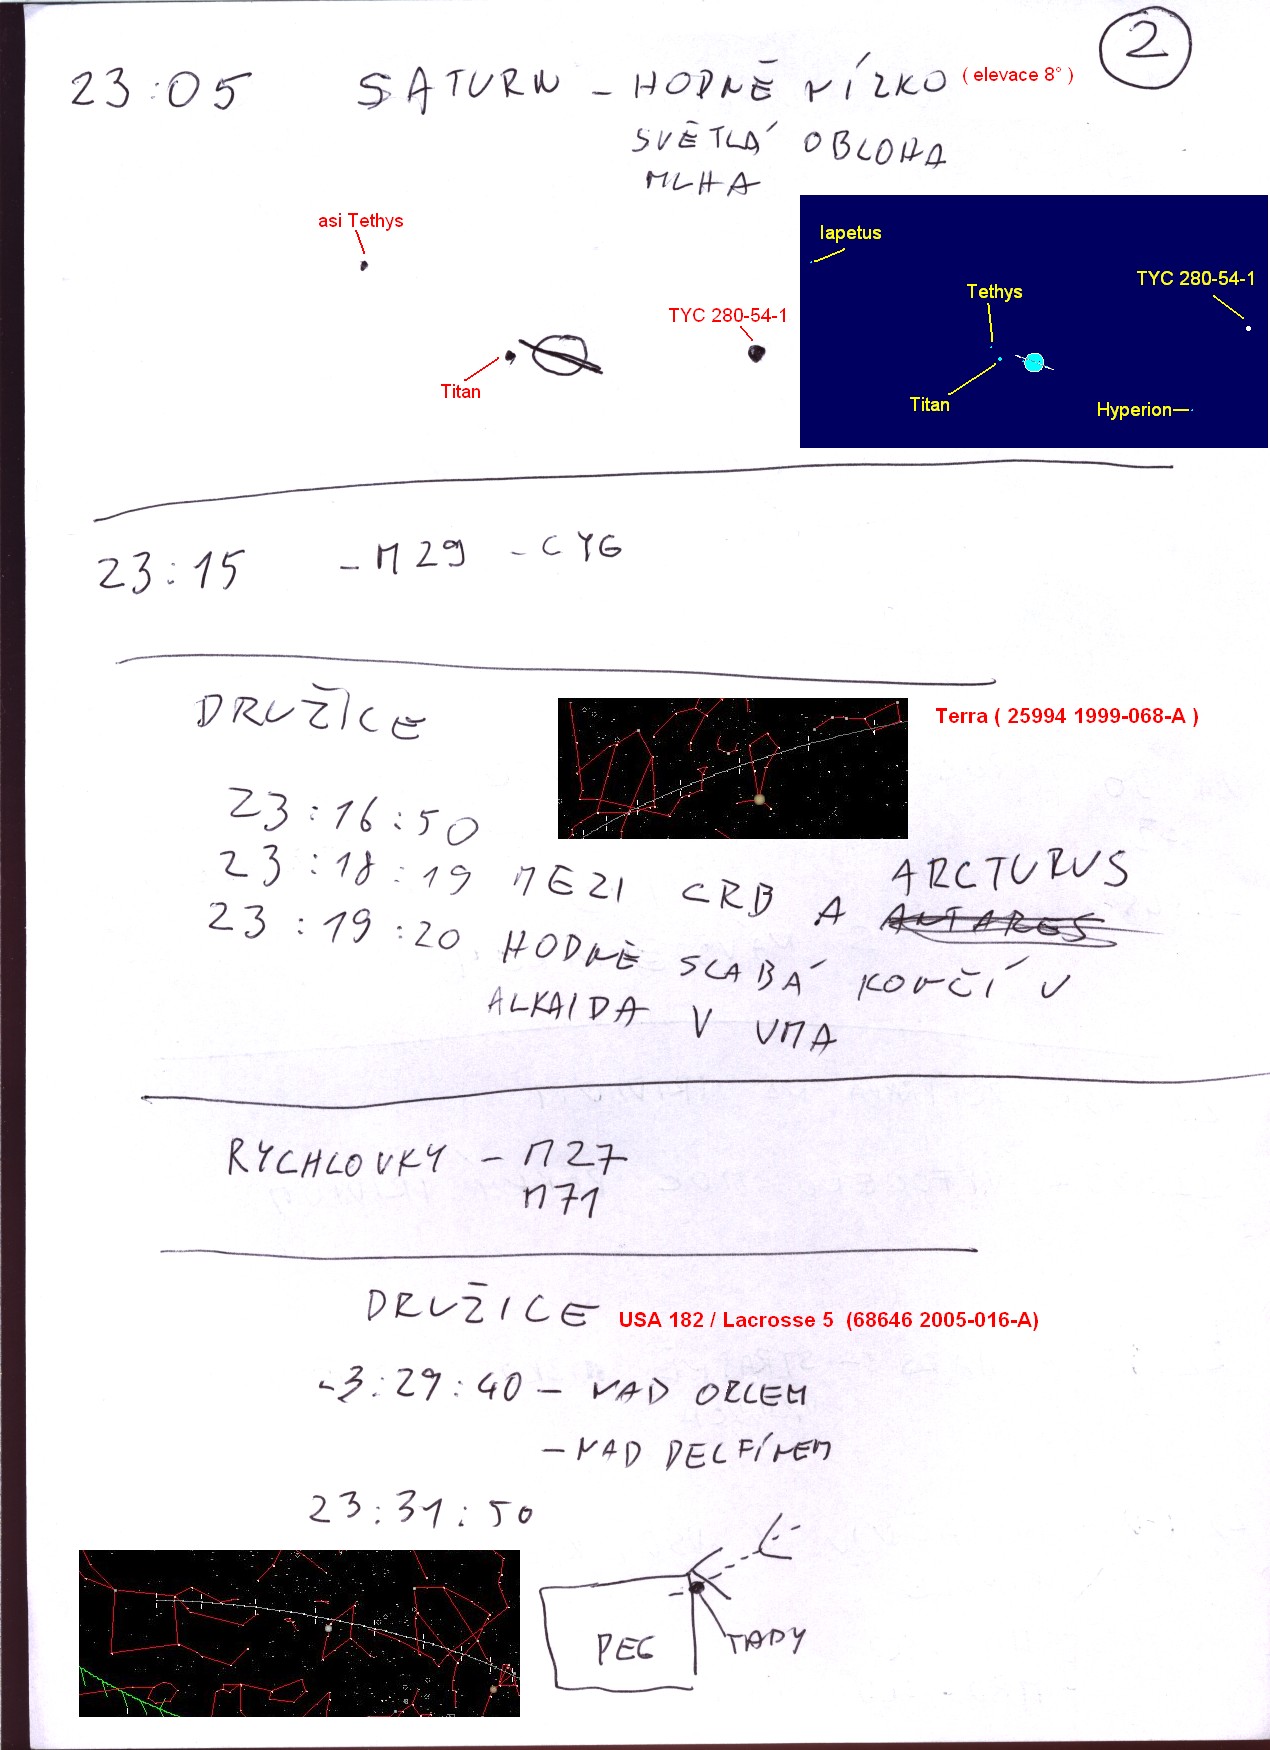 2
23:05 SATURN - HODNĚ NÍZKO ( elevace 8° )
SVĚTLÁ OBLOHA
MLHA
asi Tethys
TYC 280-54-1
Titan
Iapetus
TYC 280-54-1
Tethys
Titan
Hyperion
23:15 - M29 - CYG
DRUŽICE
Terra ( 25994 1999-068-A )
23:16:50
23:18:19 MEZI CRB A ARCTURUS
ANTARES
23:19:20 HODNĚ SLABÁ KONČÍ U
ALKAIDA V UMA
RYCHLOVKY - M27
M71
DRUŽICE USA 182 / Lacrosse 5 (68646 2005-016-A)
23:29:40 - NAD ORLEM
- NAD DELFÍNEM
23:31:50
PEG
TADY